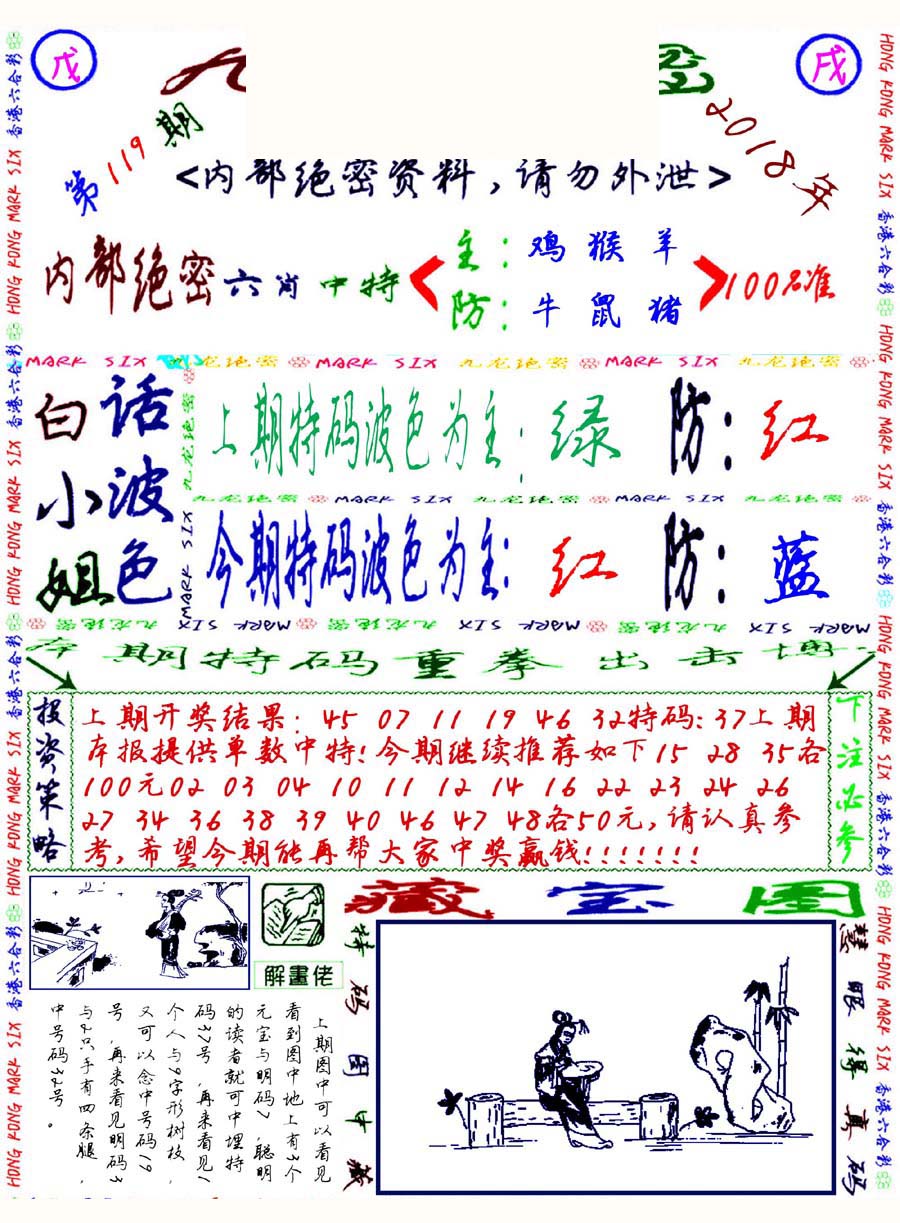 戊
戌
第119期
2018年
<内部绝密资料，请勿外泄>
内部绝密六肖中特
主：鸡 猴 羊
防：牛 鼠 猪
100%准
MARK SIX 九龙绝密 MARK SIX 九龙绝密 MARK SIX 九龙绝密
白小姐
话波色
上期特码波色为主：绿 防：红
九龙绝密 MARK SIX 九龙绝密 MARK SIX 九龙绝密
今期特码波色为主：红 防：蓝
九龙绝密 MARK SIX 九龙绝密 MARK SIX 九龙绝密 MARK SIX
九龙绝密 MARK SIX
本期特码重拳出击博
投资策略
上期开奖结果：45 07 11 19 46 32特码：37上期
本报提供单数中特！今期继续推荐如下15 28 35各
100元02 03 04 10 11 12 14 16 22 23 24 26
27 34 36 38 39 40 46 47 48各50元，请认真参
考，希望今期能再帮大家中奖赢钱！！！！！！！
下注必参
解畫佬
藏宝图
特码图中藏
慧眼得真码
上期图中可以看见
看到图中地上有3个
元宝与明码7，聪明
的读者就可中埋特
码37号，再来看见1
个人与9字形树枝，
又可以念中号码19
号，再来看见明码3
与2只手有四条腿，
中号码32号。
HONG KONG MARK SIX 香港六合彩 HONG KONG MARK SIX 香港六合彩 HONG KONG MARK SIX 香港六合彩 HONG KONG MARK SIX 香港六合彩
HONG KONG MARK SIX 香港六合彩 HONG KONG MARK SIX 香港六合彩 HONG KONG MARK SIX 香港六合彩 HONG KONG MARK SIX 香港六合彩